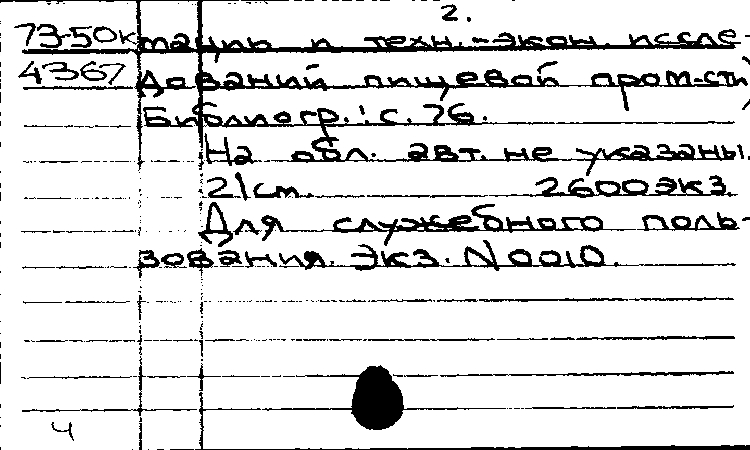 2.
73-50к мации и техн.-экон. иссле-
4367 дований пищевой пром-сти)
Библиогр.: с. 76.
На обл. авт. не указаны.
21см. 2600экз.
Для служебного поль-
зования. Экз. N 0010.
4